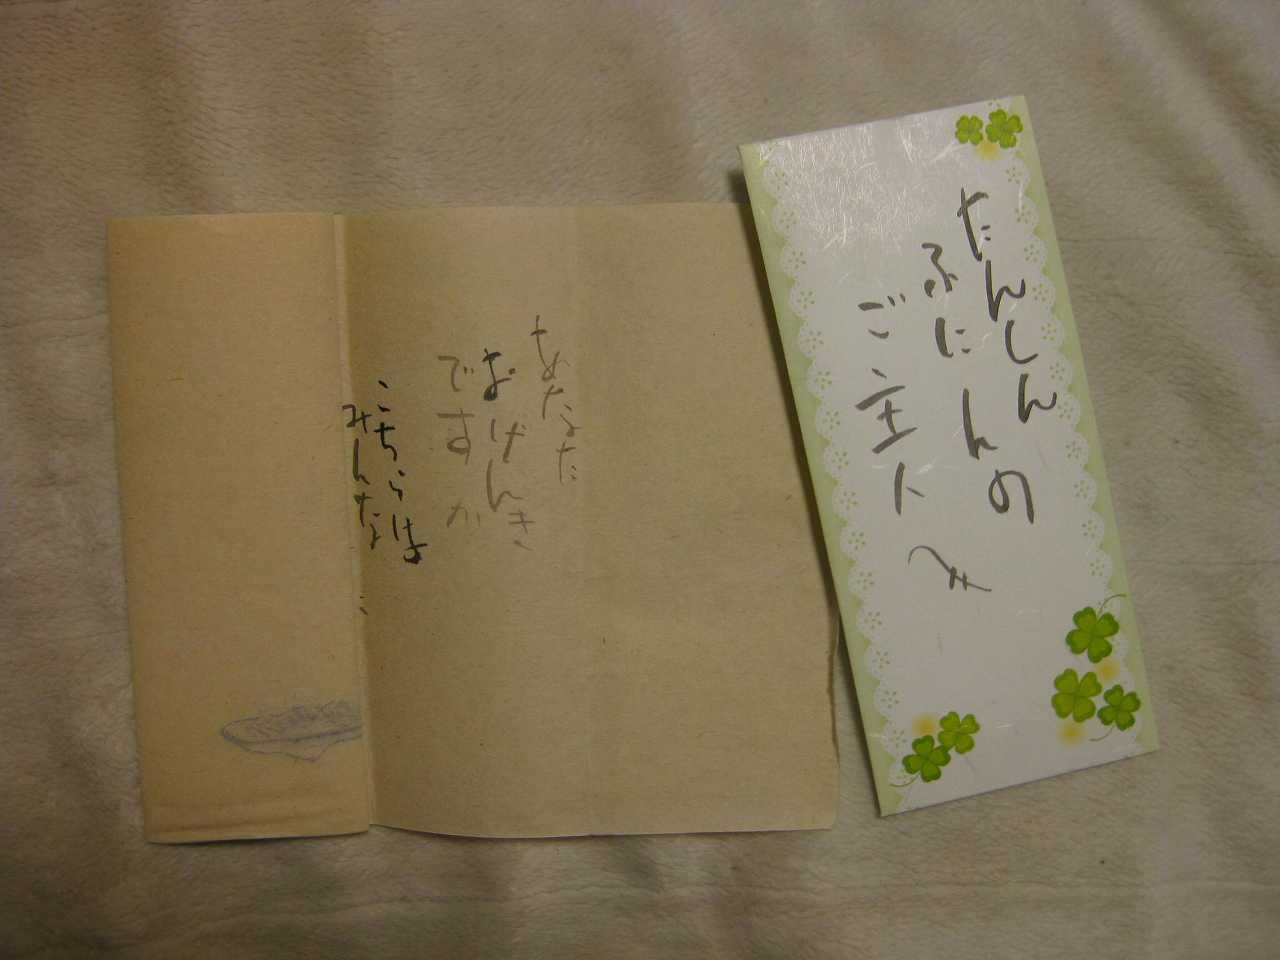 たんしんの
ふにんの
ご主人へ
あなた
おげんき
ですか
こちらは
みんな